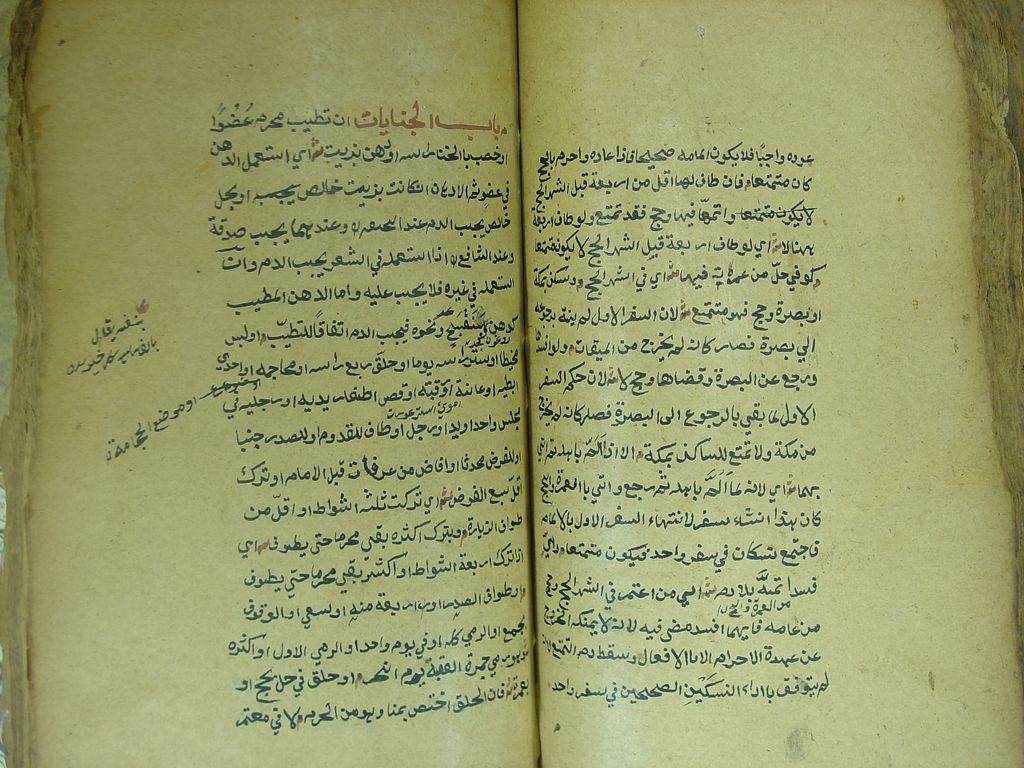 عوده واجبًا فلا يكون المامه صحيحا فاذا عاده واحرم بالحج
كان متمتعا م فان طاف لها اقل من اربعة قبل اشهر الحج
لا يكون متمتعا واتمها فيها وحج فقد تمتع ولو طاف اربعة
هنا لا ش اي لو طاف اربعة قبل اشهر الحج لا يكون متمتعا
م كوفي حل من عمرته فيها ش اي في اشهر الحج م وسكن بمكة
او بصرة وحج فهو متمتع ش لان السفر الاول لم ينته برجوعه
الي بصرة فصار كانه لم يخرج من الميقات م ولو افسدها
ورجع عن البصرة وقضاها وحج لا ش لان حكم السفر
الاول لما بقي بالرجوع الى البصرة فصار كانه لم يخرج
من مكة ولا تمتع للساكن بمكة م الا اذا الم باهله ثم اتي
بهما ش اي لانه لما الم باهله ثم رجع واتي بالعمرة والحج
كان هذا انشاء سفر لانتهاء السفر الاول بالالمام
فاجتمع نسكان في سفر واحد فيكون متمتعا م واي
فسدا تمه بلا دم ش اي من اعتمر في اشهر الحج وحج
من العمرة والحج
من عامه فايهما افسد مضى فيه لانه لا يمكنه الخروج
عن عهدة الاحرام الا بالافعال وسقط دم التمتع لانه
لم يتوفق باداء النسكين الصحيحين في سفر واحد
م باب الجنايات ان تطيب محرم عضوًا
او خضب بالحنا راسه او ادهن بزيت ش اي استعمل الدهن
في عضو ثم الادهان ان كانت بزيت خالص يجب او بخل
خالص يجب الدم عند ابي حنيفة وعندهما يجب صدقة
وعند الشافعي اذا استعمله في الشعر يجب الدم وان
استعمله في غيره فلا يجب عليه واما الدهن المطيب
كدهن البنفسج ونحوه فيجب الدم اتفاقا للتطيب م او لبس
مخيطا او ستر راسه يوما او حلق ربع راسه او محاجمه او احدي
ابطيه او عانته او رقبته او قص اظفار يديه او رجليه في
مجلس واحد او يد او رجل او طاف للقدوم او للصدر جنبا
او للفرض محدثا او افاض من عرفات قبل الامام او ترك
اقل سبع الفرض ش اي تركت ثلثة اشواط او اقل من
طواف الزيارة م وبترك اكثره بقي محرما حتى يطوف ش اي
ان ترك اربعة اشواط او اكثر بقي محرما حتي يطوف
م او طواف الصدر او اربعة منه او سعي او الوقوف
بجمع او الرمي كله او في يوم واحد او الرمي الاول او اكثره
وهو رمي جمرة العقبة يوم النحر م او حلق في حل بحج او
بعمرة ش فان الحلق اختص بمنا وهو من الحرم م لا في معتمر
او موضع الحجامة